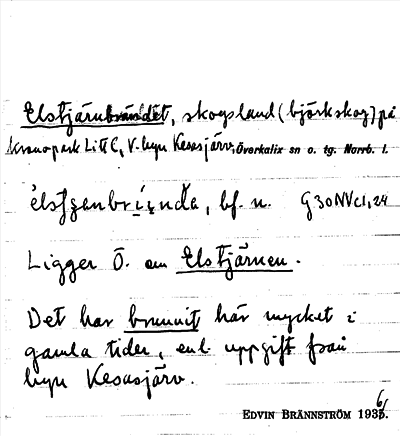 Elstjärnbrändet, skogsland (björkskog) på
kronopark Litt C, V. byn Kesasjärv, Överkalix sn o. tg. Norrb. l.
bf. n. G30NVc1,24
Ligger Ö. om Elstjärnen.
Det har brunnit här mycket i
gamla tider, enl. uppgift från
byn Kesasjärv.
EDVIN BRÄNNSTRÖM 1936.